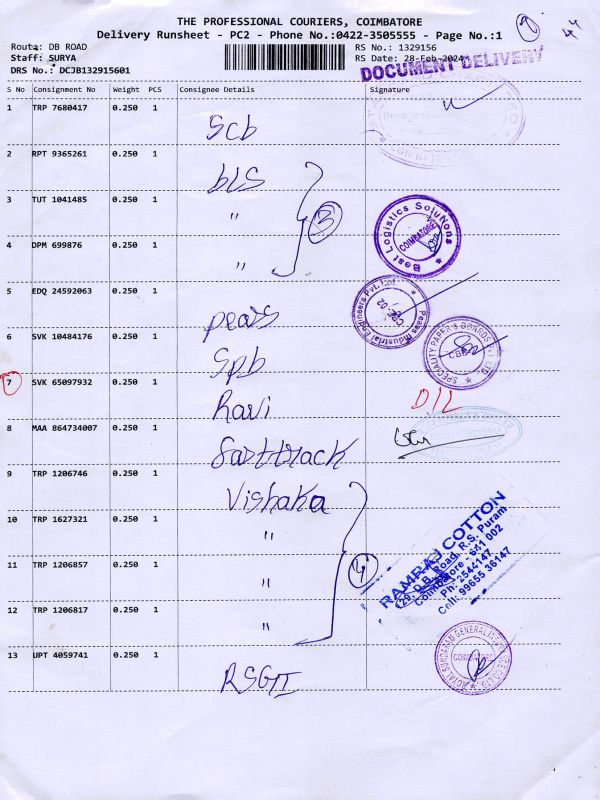 THE PROFESSIONAL COURIERS, COIMBATORE
Delivery Runsheet - PC2 - Phone No.:0422-3505555 - Page No.:1
Route: DB ROAD RS No.: 1329156
Staff: SURYA RS Date: 28-Feb-2024
DRS No.: DCJB132915601
DOCUMENT DELIVERY
S No Consignment No Weight PCS Consignee Details Signature
1 TRP 7680417 0.250 1
Scb
2 RPT 9365261 0.250 1
bLS
3 TUT 1041485 0.250 1
" 3
Best Logistics Solutions
COIMBATORE
4 DPM 699876 0.250 1
"
5 EDQ 24592063 0.250 1
pears
Peaas Industrial Engineers Pvt. Ltd.
CBE - 02
6 SVK 10484176 0.250 1
Spb
SPECIALITY PAPER & BOARDS P. LTD.
CBE
7 SVK 65097932 0.250 1
Ravi D/L
8 MAA 864734007 0.250 1
Fasttrack
9 TRP 1206746 0.250 1
Vishaka
10 TRP 1627321 0.250 1
"
11 TRP 1206857 0.250 1
" 4
12 TRP 1206817 0.250 1
"
RAMRAJ COTTON
129, D.B. Road, R.S. Puram
Coimbatore - 641 002
Ph: 2544147
Cell: 99655 36147
13 UPT 4059741 0.250 1
RSGII
ROYAL SUNDARAM GENERAL